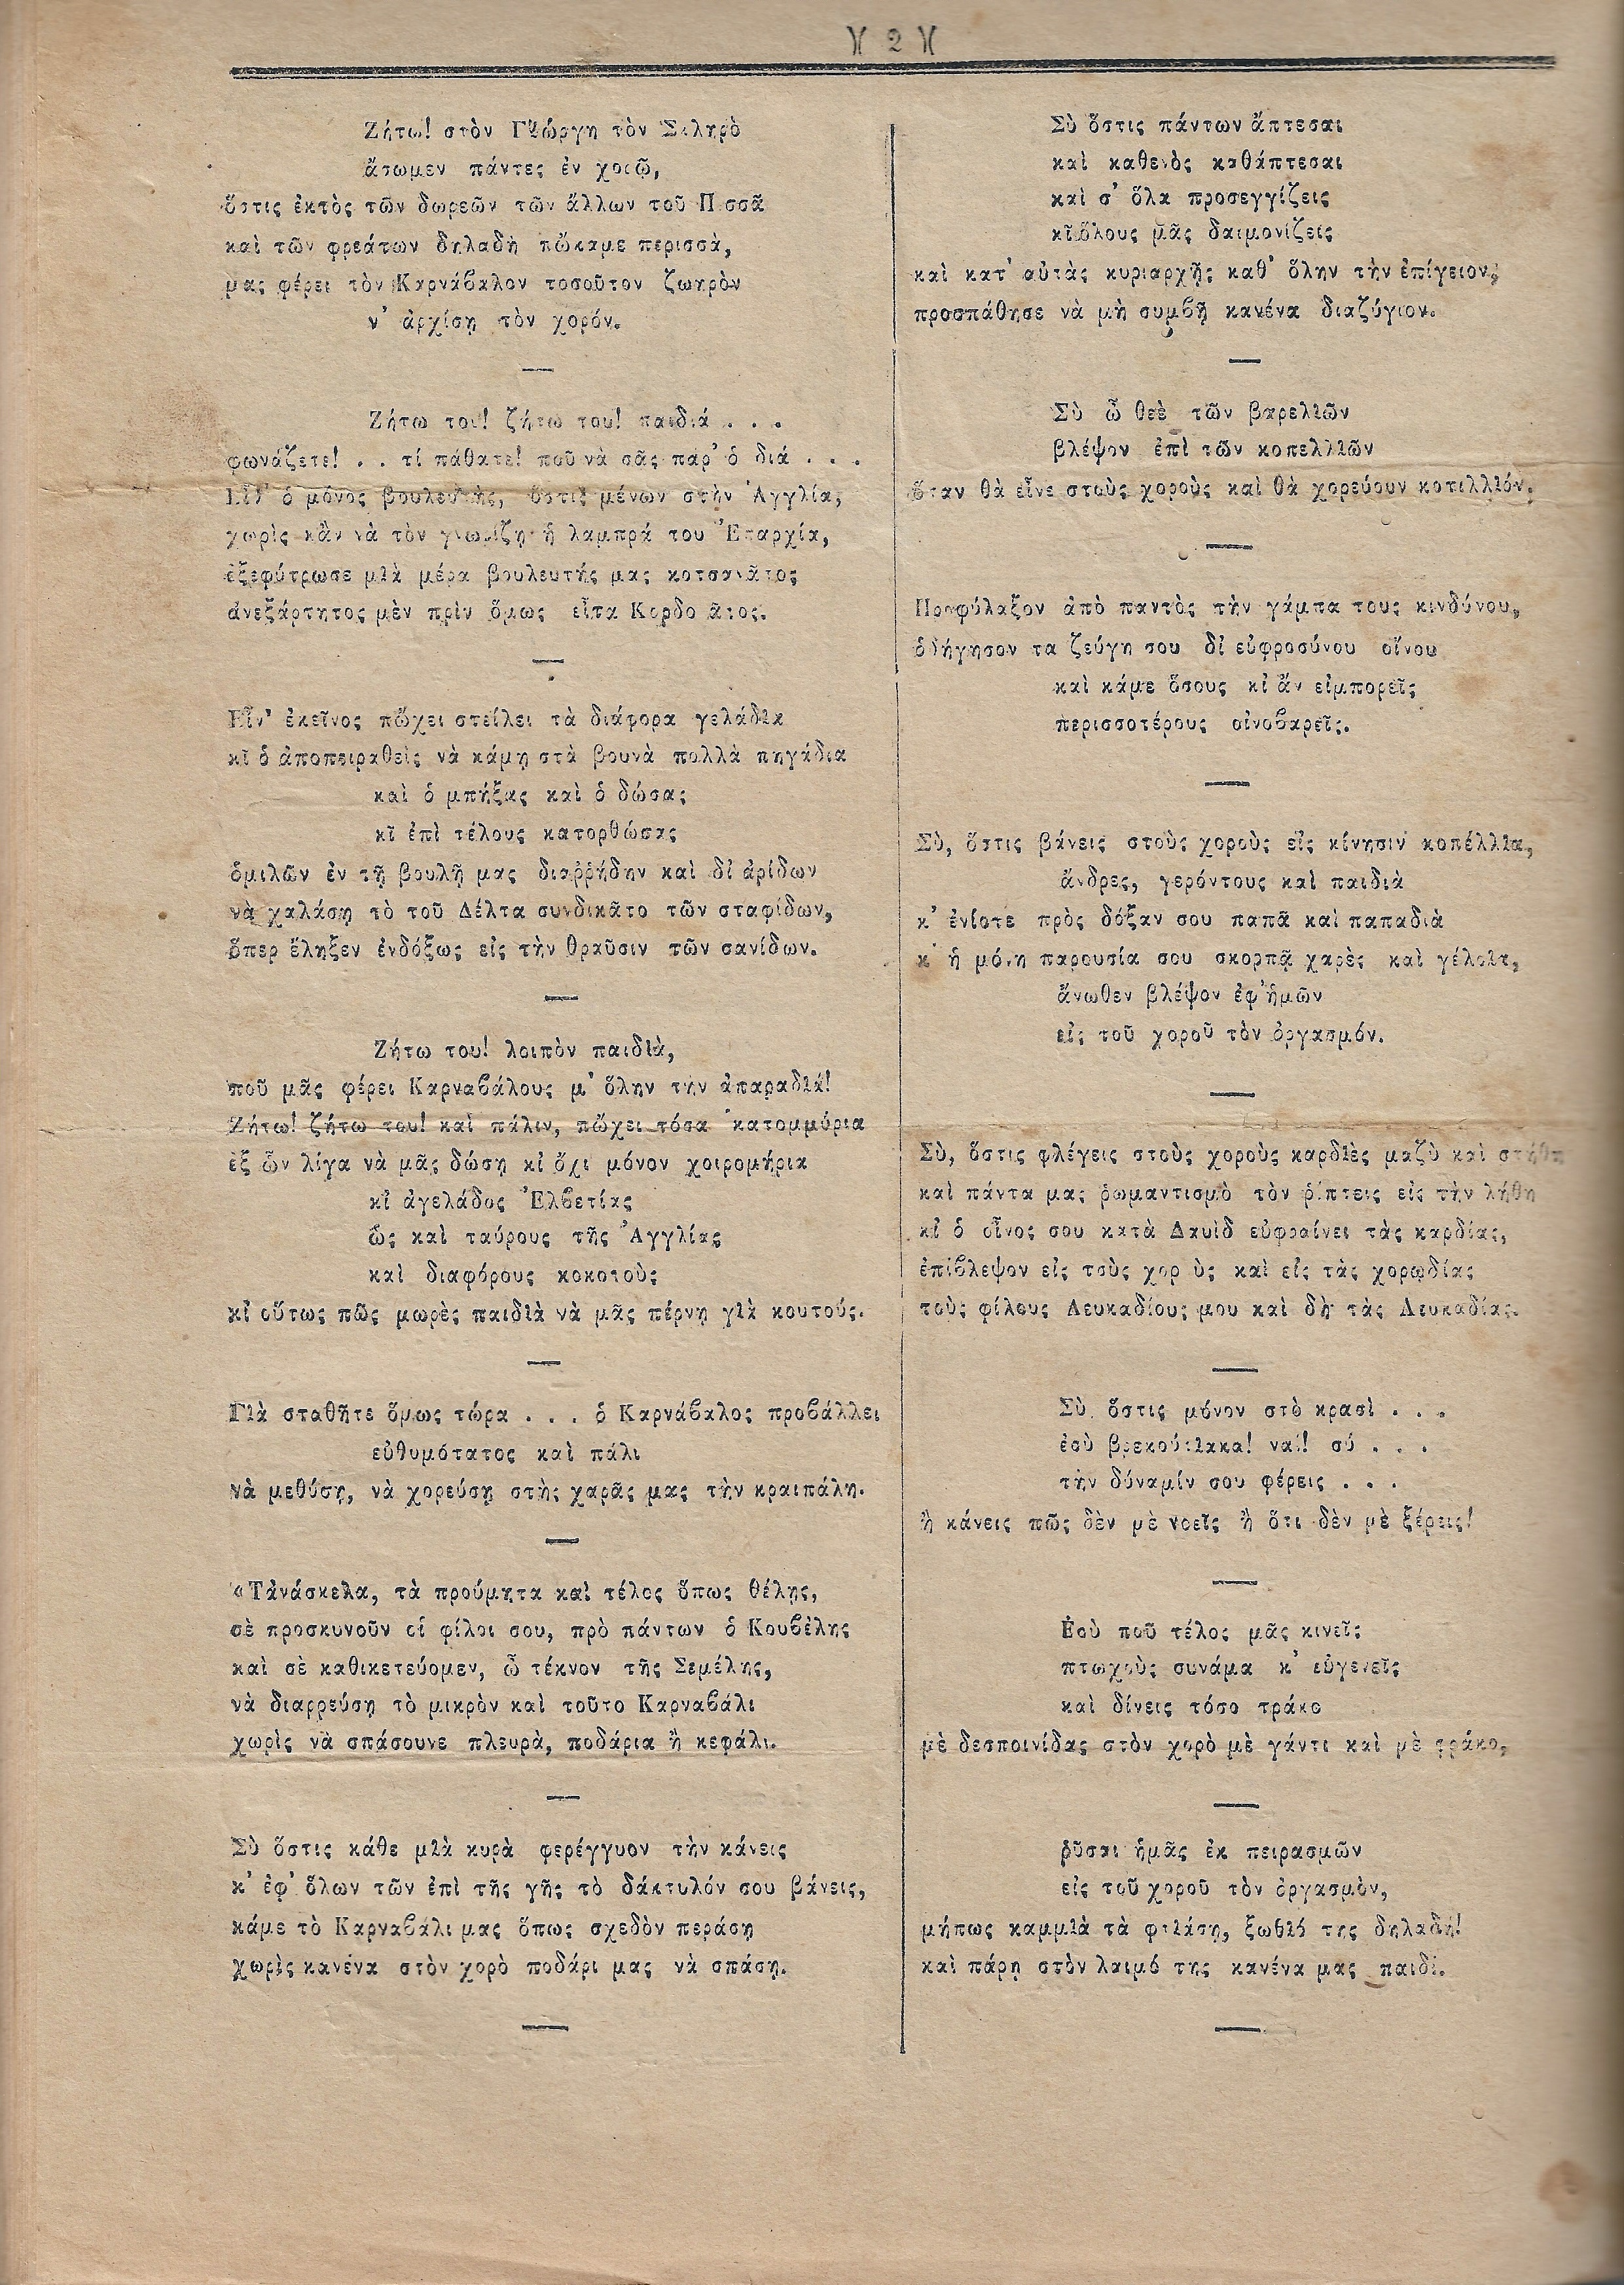 )( 2 )(
Ζήτω! στὸν Γεώργη τὸν Σκληρὸ
ἄσωμεν πάντες ἐν χορῷ,
ὅστις ἐκτὸς τῶν δωρεῶν τῶν ἄλλων τοῦ
καὶ τῶν φρεάτων δηλαδὴ πὤκαμε περισσὰ,
μας φέρει τὸν Καρνάβαλον τοσοῦτον ζωηρὸν
ν' ἀρχίσῃ τὸν χορόν.
Ζήτω του! ζήτω του! παιδιά . . .
φωνάζετε! . . τί πάθατε! ποῦ νὰ σᾶς πάρ' ὁ διά . . .
ὁ μόνος βουλευτὴς, ὅστις μένων στὴν Ἀγγλία,
χωρὶς κἂν νὰ τὸν γνωρίζῃ ἡ λαμπρά του Ἐπαρχία,
ἐξεφύτρωσε μιὰ μέρα βουλευτής μας κοτσανᾶτος
ἀνεξάρτητος μὲν πρὶν ὅμως εἶτα
Εἶν' ἐκεῖνος πὤχει στείλει τὰ διάφορα γελάδια
κῖ ὁ ἀποπειραθεὶς νὰ κάμῃ στὰ βουνὰ πολλὰ πηγάδια
καὶ ὁ μπήξας καὶ ὁ δώσας
κῖ ἐπὶ τέλους κατορθώσας
ὁμιλῶν ἐν τῇ βουλῇ μας διαῤῥήδην καὶ δἰ ἀρίδων
νὰ χαλάσῃ τὸ τοῦ Δέλτα συνδικᾶτο τῶν σταφίδων,
ὅπερ ἔληξεν ἐνδόξως εἰς τὴν θραῦσιν τῶν σανίδων.
Ζήτω του! λοιπὸν παιδιὰ,
ποῦ μᾶς φέρει Καρναβάλους μ' ὅλην τὴν ἀπαραδιά!
Ζήτω! ζήτω του! καὶ πάλιν, πὤχει τόσα κατομμύρια
ἐξ ὧν λίγα νὰ μᾶς δώσῃ κἰ ὄχι μόνον χοιρομήρια
κἰ ἀγελάδος Ἑλβετίας
ὣς καὶ ταύρους τῆς Ἀγγλίας
καὶ διαφόρους κοκοτοὺς
κἰ οὕτως πῶς μωρὲς παιδιὰ νὰ μᾶς πέρνῃ γιὰ κουτούς.
Γιὰ σταθῆτε ὅμως τώρα . . . ὁ Καρνάβαλος προβάλλει
εὐθυμότατος καὶ πάλι
νὰ μεθύσῃ, νὰ χορεύσῃ στὴς χαρᾶς μας τὴν κραιπάλη.
«Τἀνάσκελα, τὰ προύμητα καὶ τέλος ὅπως θέλῃς,
σὲ προσκυνοῦν οἱ φίλοι σου, πρὸ πάντων ὁ Κουβέλης
καὶ σὲ καθικετεύομεν, ὦ τέκνον τῆς Σεμέλης,
νὰ διαρρεύσῃ τὸ μικρὸν καὶ τοῦτο Καρναβάλι
χωρὶς νὰ σπάσουνε πλευρὰ, ποδάρια ἢ κεφάλι.
Σὺ ὅστις κάθε μιὰ κυρὰ φερέγγυον τὴν κάνεις
κ' ἐφ' ὅλων τῶν ἐπὶ τῆς γῆς τὸ δάκτυλόν σου βάνεις,
κάμε τὸ Καρναβάλι μας ὅπως σχεδὸν περάσῃ
χωρὶς κανένα στὸν χορὸ ποδάρι μας νὰ σπάσῃ.
Σὺ ὅστις πάντων ἅπτεσαι
καὶ καθενὸς καθάπτεσαι
καὶ σ' ὅλα προσεγγίζεις
κῖ ὅλους μᾶς δαιμονίζεις
καὶ κατ' αὐτὰς κυριαρχῇς καθ' ὅλην τὴν ἐπίγειον,
προσπάθησε νὰ μὴ συμβῇ κανένα διαζύγιον.
Σὺ ὦ θεὲ τῶν βαρελιῶν
βλέψον ἐπὶ τῶν κοπελλιῶν
ὅταν θὰ εἶνε στοὺς χοροὺς καὶ θὰ χορεύουν κοτιλλιόν.
Προφύλαξον ἀπὸ παντὸς τὴν γάμπα τους κινδύνου,
ὁδήγησον τα ζεύγη σου δἰ εὐφροσύνου οἴνου
καὶ κάμε ὅσους κἰ ἂν εἰμπορεῖς
περισσοτέρους οἰνοβαρεῖς.
Σὺ, ὅστις βάνεις στοὺς χοροὺς εἰς κίνησιν κοπέλλια,
ἄνδρες, γερόντους καὶ παιδιὰ
κ' ἐνίοτε πρὸς δόξαν σου παπᾶ καὶ παπαδιὰ
κ' ἡ μόνη παρουσία σου σκορπᾷ χαρὲς καὶ γέλοια,
ἄνωθεν βλέψον ἐφ' ἡμῶν
εἰς τοῦ χοροῦ τὸν ὀργασμόν.
Σὺ, ὅστις φλέγεις στοὺς χοροὺς καρδιὲς μαζὺ καὶ στήθη
καὶ πάντα μας ῥωμαντισμὸ τὸν ῥίπτεις εἰς τὴν λήθη
κἰ ὁ οἶνος σου κατὰ Δαυὶδ εὐφραίνει τὰς καρδίας,
ἐπίβλεψον εἰς τοὺς χοροὺς καὶ εἰς τὰς χορῳδίας
τοὺς φίλους Λευκαδίους μου καὶ δὴ τὰς Λευκαδίας.
Σὺ ὅστις μόνον στὸ κρασὶ . . .
ἐσὺ βρεκούκιακα! ναί! σύ . . .
τὴν δύναμίν σου φέρεις . . .
ἢ κάνεις πῶς δὲν μὲ νοεῖς ἢ ὅτι δὲν μὲ ξέρεις!
Ἐσὺ ποῦ τέλος μᾶς κινεῖς
πτωχοὺς συνάμα κ' εὐγενεῖς
καὶ δίνεις τόσο τράκο
μὲ δεσποινίδας στὸν χορὸ μὲ γάντι καὶ μὲ φράκο,
ῥῦσαι ἡμᾶς ἐκ πειρασμῶν
εἰς τοῦ χοροῦ τὸν ὀργασμὸν,
μήπως καμμιὰ τὰ φτιάσῃ, ξωθιό της δηλαδή!
καὶ πάρῃ στὸν λαιμό της κανένα μας παιδί.